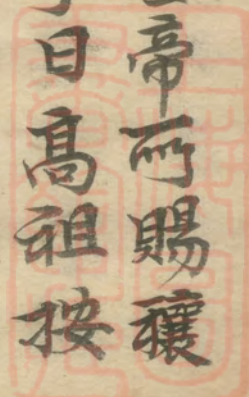 帝所賜穰
日高祖按